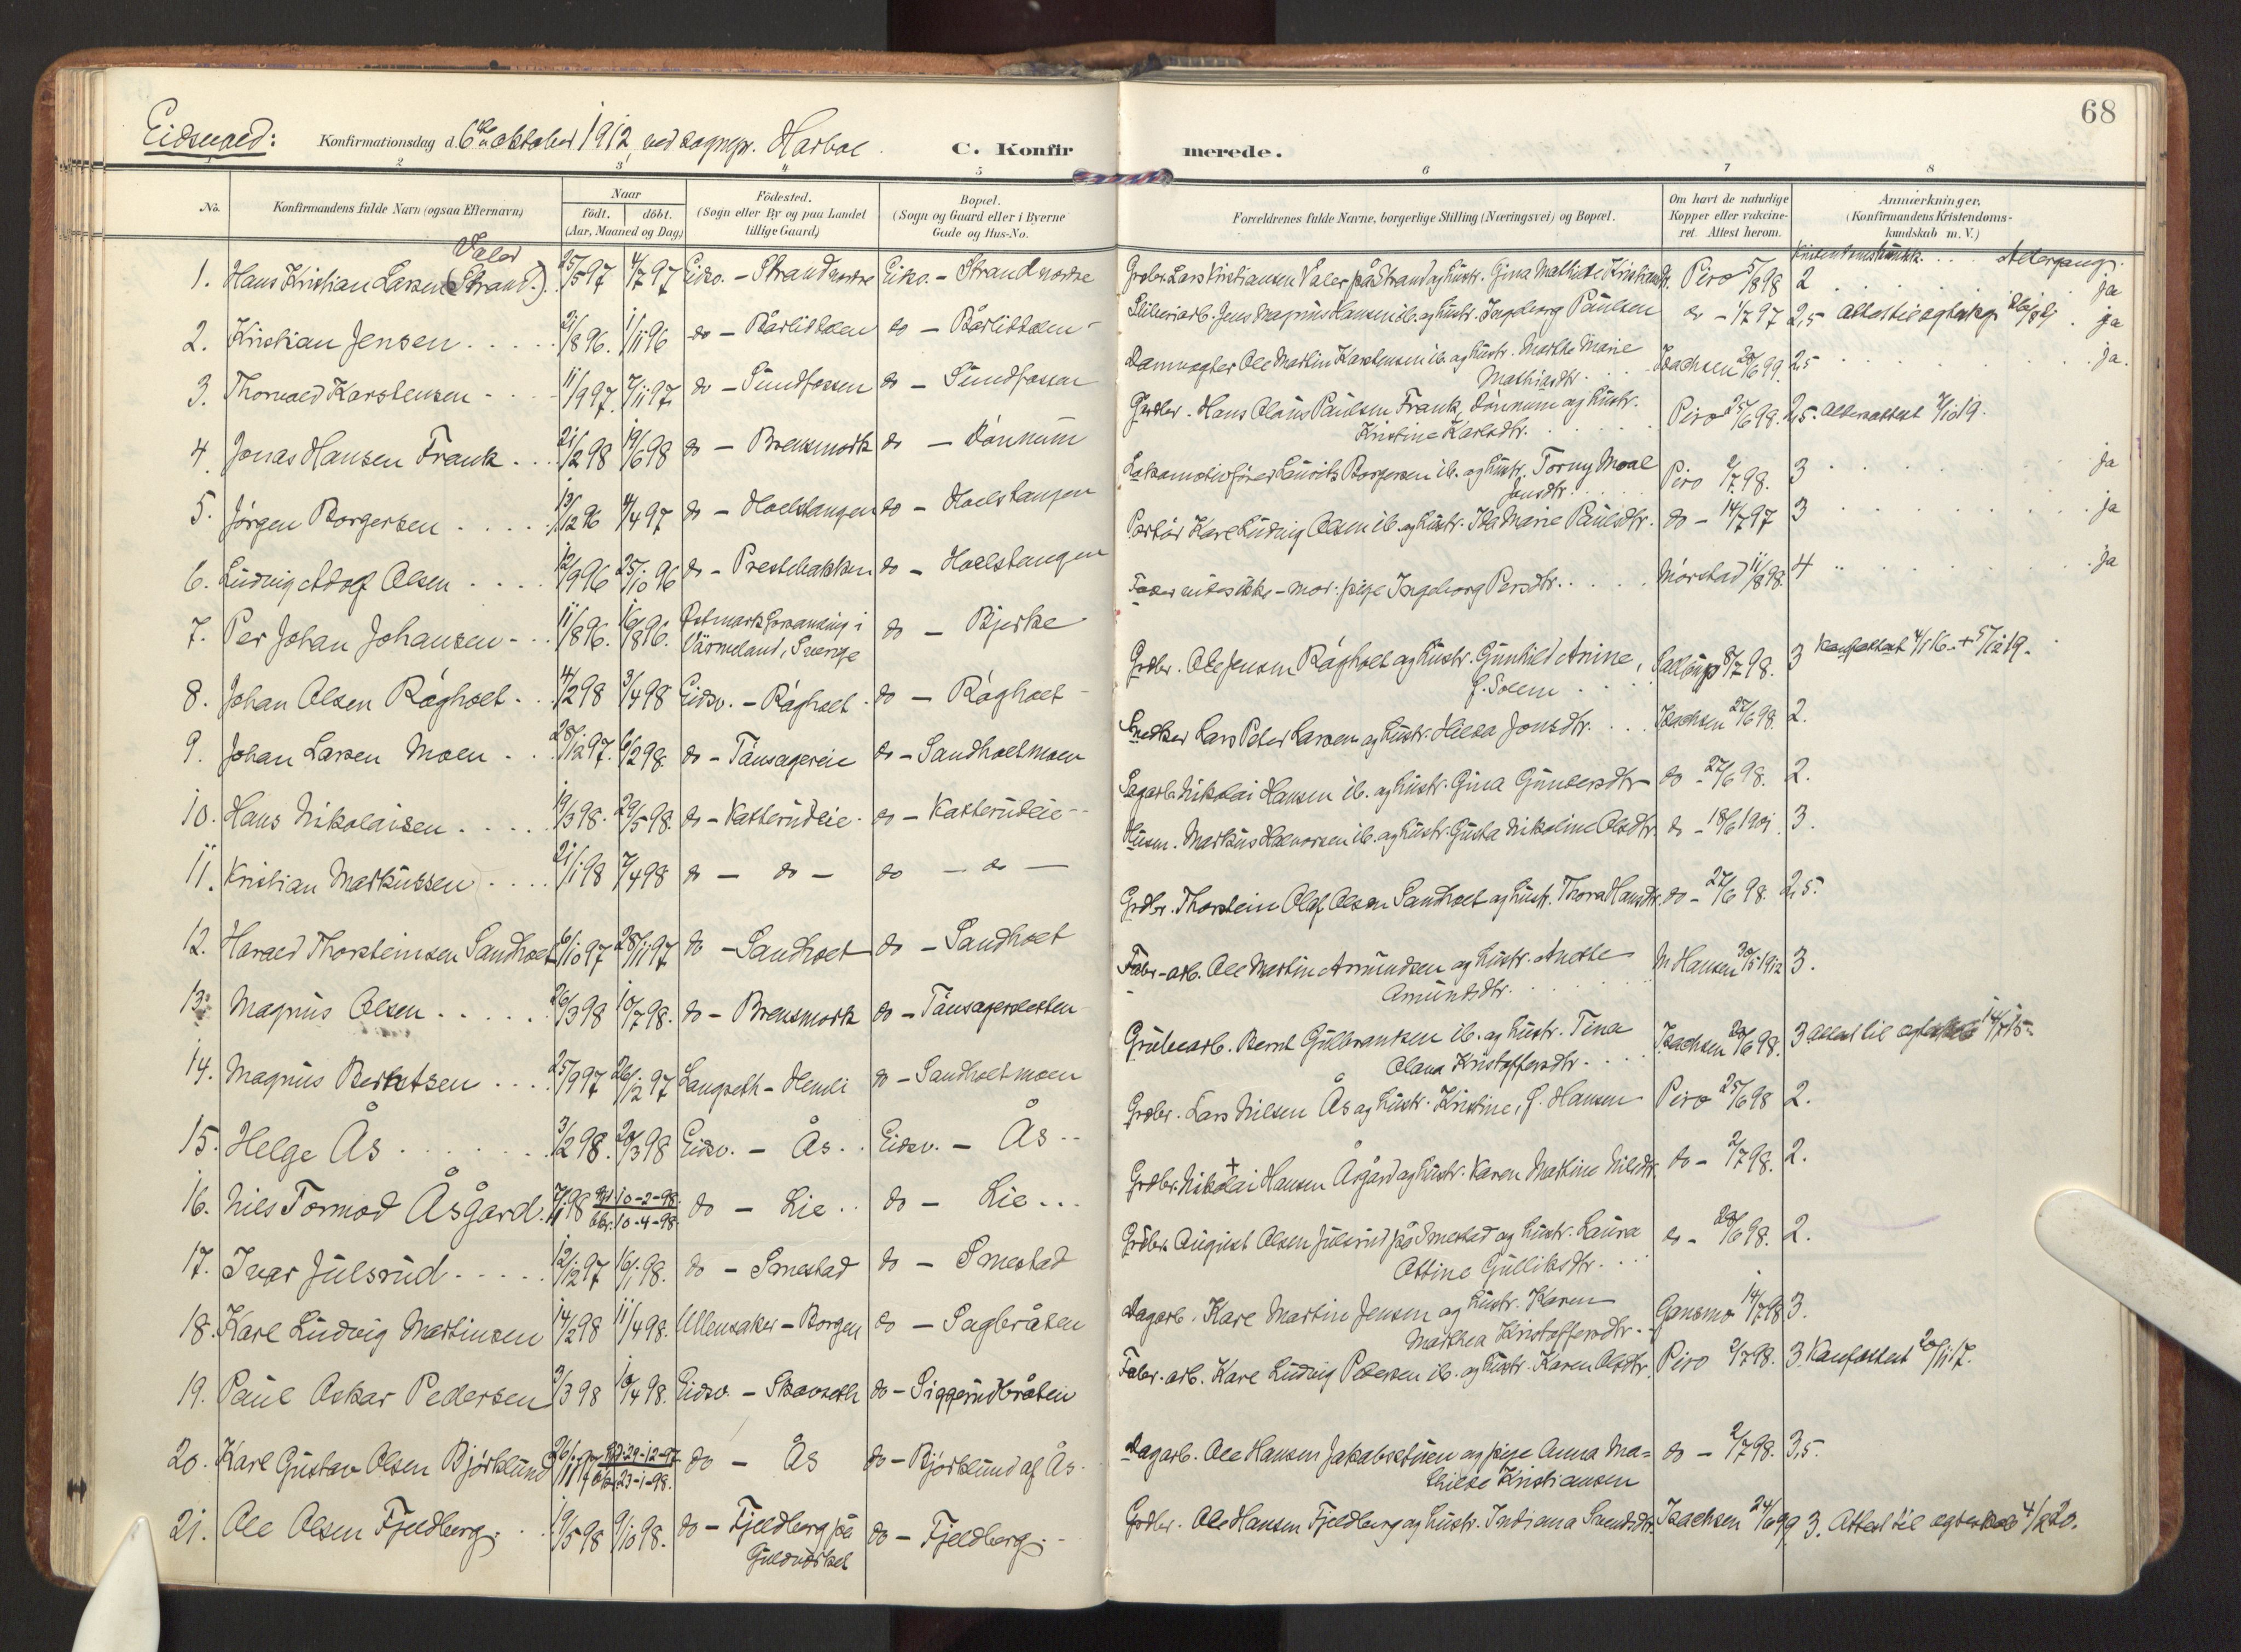 68
Eidsvold: Konfirmationsdag d. 6te oktober 1912, ved sognepr. Harboe. C. Konfirmerede.
1 2 3 4 5 6 7 8
No. Konfirmandens fulde Navn (ogsaa Efternavn) Naar født. døbt. (Aar, Maaned og Dag) Fødested. (Sogn eller By og paa Landet tillige Gaard) Bopæl. (Sogn og Gaard eller i Byerne Gade og Hus-No. Forældrenes fulde Navne, borgerlige Stilling (Næringsvei) og Bopæl. Om havt de naturlige Kopper eller vaccineret. Attest herom. Anmærkninger. (Konfirmandens Kristendomskundskab m. V.)
Valer
1. Hans Kristian Larsen (Strand.) 25/5 97 4/7 97 Eidsv. - Strand nordre Eidsv. - Strand nordre Grdbr. Lars Kristiansen Valer på Strand og hustr. Gina Mathilde Kristiansdtr. Piro 5/8 98 2 ja
2. Kristian Jensen 21/8 96. 1/11 96 do - Bårlidalen do - Bårlidalen Jens Magnus Hansen ib. og hustr. Ingeborg Paulsen do - 1/7 97 2,5 ja
3. Thorvald Karstensen 11/9 97. 7/11 97 do - Sundfossen do - Sundfossen Damvogter Ole Martin Karstensen ib. og hustr. Marthe Marie
Mathiasdtr. Isachsen 20/6 99. 2,5 ja.
4. Jonas Hansen Frank 21/2 98 19/6 98 do - Brensmork do - Dønnum Grdbr. Hans Olaus Paulsen Frank, Dønnum og hustr.
Kristine Karlsdtr. Piro 25/6 98. 2,5.
5. Jørgen Borgersen 13/12 96 4/4 97 do - Holstangen do - Holstangen Lokomotivfører Laurits Borgersen ib. og hustr. Torny Moal
Jonsdtr. Piro 2/7 98. 3 ja
6. Ludvig Adolf Olsen 12/9 96 25/10 96 do - Prestebakken do - Holstangen Portør Karl Ludvig Olsen ib. og hustr. Ida Marie Paulsdtr. do - 14/7 97 3 ja
7. Per Johan Johansen 11/8 96. 16/8 96. Östmarks forsamling i
Värmeland, Sverige do - Bjerke Fader vides ikke - mor: pige Ingeborg Persdtr. Mørstad 11/8 98. 4 ja
8. Johan Olsen Råholt 14/2 98 3/4 98 Eidsv. - Råholt do - Råholt Grdbr. Ole Jensen Råholt og hustr. Gunhild Anine,
f. Solem 8/7 98. 3
9. Johan Larsen Moen 28/12 97. 6/2 98. do - Tånsagereie do - Sandholtmoen Snedker Lars Peter Larsen og hustr. Hilda Jonsdtr. Isachsen 27/6 98. 2.
10. Hans Nikolaisen 19/3 98. 29/5 98. do - Katterudeie do - Katterudeie Sagarb. Nikolai Hansen ib. og hustr. Gina Gundersdtr do - 27/6 98. 2.
11. Kristian Markussen 21/1 98 7/4 98 do - do - do - do - Husm. Markus Halvorsen ib. og hustr. Gusta Nikoline Olsdtr. do - 18/6 1901. 3.
12. Harald Thorsteinsen Sandholt 6/10 97 28/11 97 do - Sandholt do - Sandholt Grdbr. Thorstein Olaf Olsen Sandholt og hustr. Thora Hansdtr. do - 27/6 98. 2,5.
13. Magnus Olsen 26/3 98 10/7 98. do - Brensmork do - Tånsagersletten Fabr-arb. Ole Martin Amundsen og hustr. Anethe
Amundsdtr. M Hansen 30/5 1912 3.
14. Magnus Berntsen 25/9 97 26/12 97 Langseth - Hemli do - Sandholtmoen Grubearb. Bernt Gulbrantsen ib. og hustr. Tina
Olava Kristoffersdtr. Isachsen 20/6 98. 3 Attest til egteskab 14/7 15.
15. Helge Ås 3/2 98. 20/3 98 Eidsv. - Ås Eidsv. - Ås Grdbr. Lars Nilsen Ås og hustr. Kristine, f. Hansen Piro 25/6 98 2.
16. Nils Tormod Åsgard 7/1 98 10-2-98. 10-4-98 do - Lie do - Lie Grdbr. Nikolai Hansen Åsgård og hustr. Karen Mathine Nilsdtr. do - 2/7 98. 2.
17. Ivar Julsrud 12/12 97 16/1 98. do - Smestad do - Smestad Grdbr. August Olsen Julsrud på Smestad og hustr. Laura
Ottine Gulliksdtr. do - 20/6 98. 2.
18. Karl Ludvig Martinsen 14/2 98 11/4 98. Ullensaker - Borgen do - Sagbråten Dagarb. Karl Martin Jensen og hustr. Karen
Marthea Kristoffersdtr. Gansmo 14/7 98 3.
19. Paul Oskar Pedersen 3/3 98 10/4 98. Eidsv. - Skovseth do - Siggerudbråten Fabr.-arb. Karl Ludvig Pedersen ib. og hustr. Karen Olsdtr. Piro 2/7 98. 3. Konfattest 20/11 17.
20. Karl Gustav Olsen Bjørklund 26/11 97 29-12-97 23-1-98. do - Ås do - Bjørklund af Ås. Dagarb. Ole Hansen Jakobsstuen og pige Anna Ma=
thilde Kristiansen do - 2/7 98. 3,5.
21. Ole Olsen Fjeldberg 19/5 98 9/10 98. do - Fjeldberg på
Guldverket do - Fjeldberg Grdbr. Ole Hansen Fjeldberg og hustr. Indiana Svendsdtr. Isachsen 24/6 99. 3. Attest til egteskab 4/2 20.